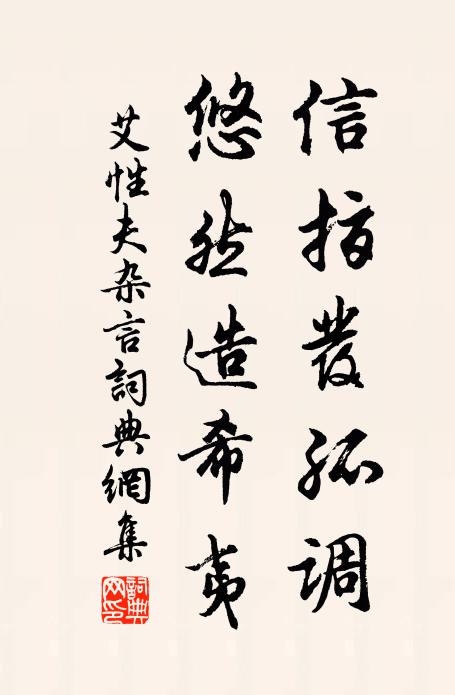 信指發孤调
悠然造希夷
艾性夫杂言詞典網集
詞典网印